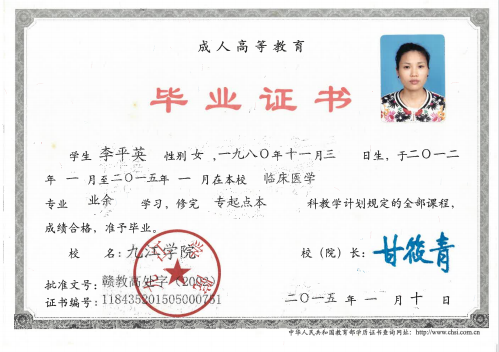 成人高等教育
毕业证书
学生 李平英 性别 女 ,一九八〇年十一月三 日生，于二〇一二
年 一 月至二〇一五年 一 月在本校 临床医学
专业 业余 学习，修完 专起点本 科教学计划规定的全部课程，
成绩合格，准予毕业。
校 名： 九江学院 校（院）长： 甘筱青
批准文号： 赣教高处字
证书编号： 118435201505000751 二〇一五 年 一 月 十 日
中华人民共和国教育部学历证书查询网址：http://www.chsi.com.cn